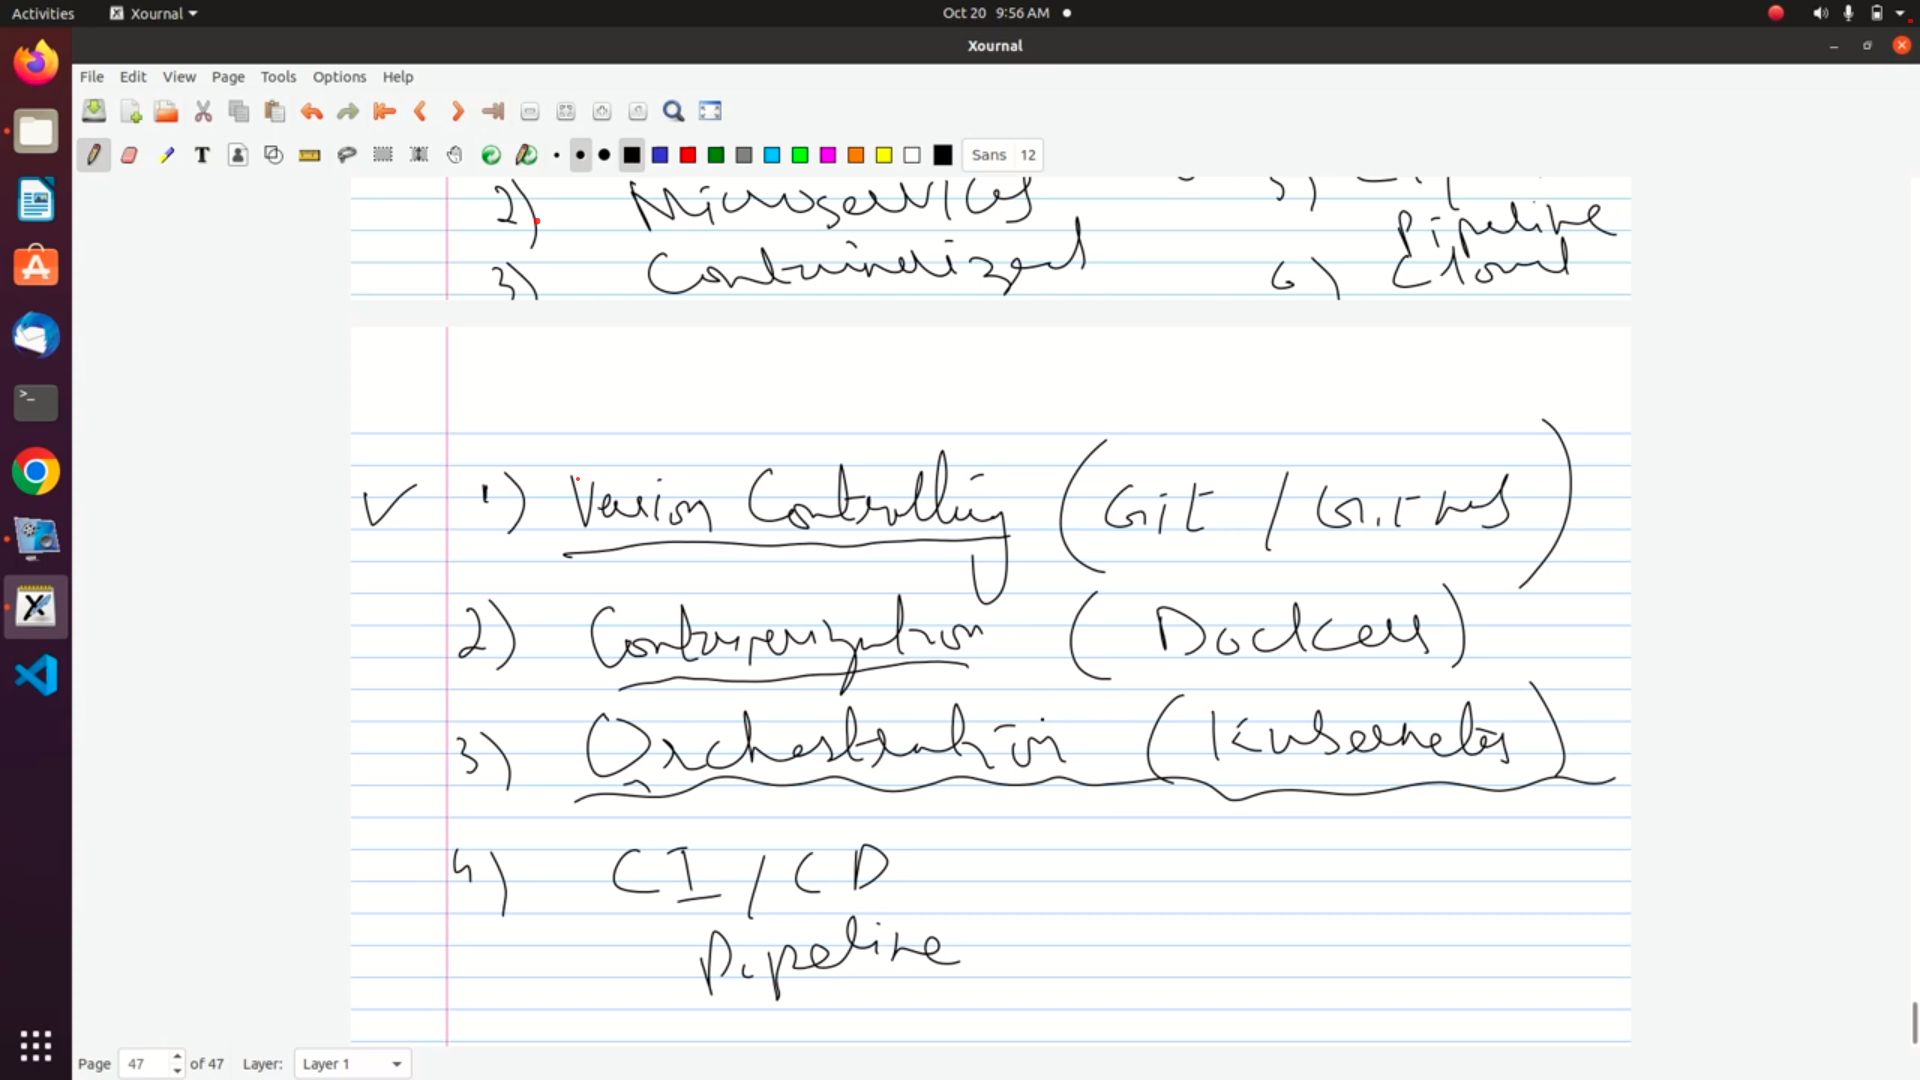 Activities Xournal Oct 20 9:56 AM
Xournal
File Edit View Page Tools Options Help
Sans 12
2) Microservices
3) Containerized
5)
Pipeline
6) Cloud
1) Version Controlling (Git / GitHub)
2) Containerization (Docker)
3) Orchestration (Kubernetes)
4) CI/CD
Pipeline
Page 47 of 47 Layer: Layer 1